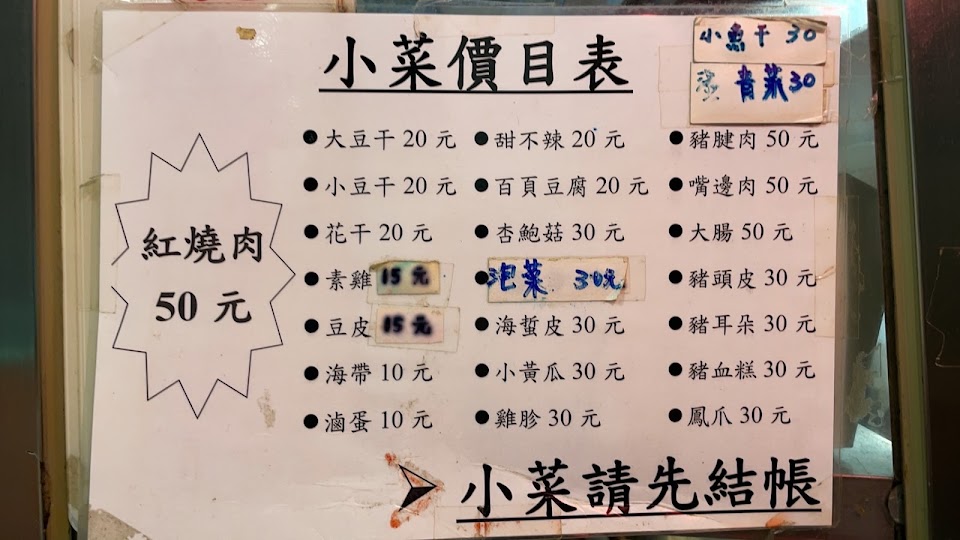 小菜價目表
小魚干 30
青菜30
紅燒肉
50 元
●大豆干 20 元
●小豆干 20 元
●花干 20 元
●素雞 15 元
●豆皮 15 元
●海帶 10 元
●滷蛋 10 元
●甜不辣 20 元
●百頁豆腐 20 元
●杏鮑菇 30 元
●泡菜 30元
●海蜇皮 30 元
●小黃瓜 30 元
●雞胗 30 元
●豬腱肉 50 元
●嘴邊肉 50 元
●大腸 50 元
●豬頭皮 30 元
●豬耳朵 30 元
●豬血糕 30 元
●鳳爪 30 元
小菜請先結帳